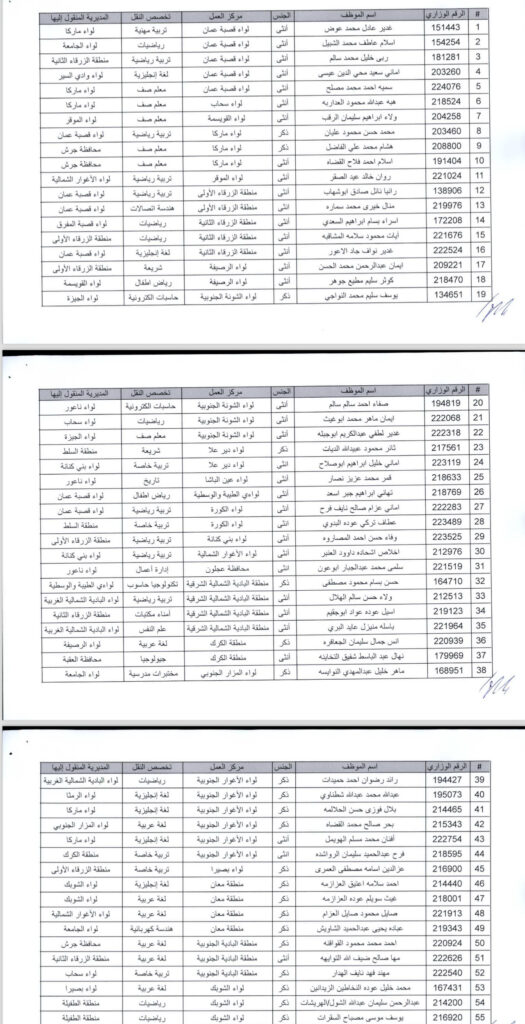 # الرقم الوزاري اسم الموظف الجنس مركز العمل تخصص النقل المديرية المنقول إليها
1 151443 غدير عادل محمد عوض أنثى لواء قصبة عمان تربية مهنية لواء ماركا
2 154254 اسلام عاطف محمد الشبيل أنثى لواء قصبة عمان رياضيات لواء الجامعة
3 181281 ربى خليل محمد سالم أنثى لواء قصبة عمان تربية رياضية منطقة الزرقاء الثانية
4 203260 اماني سعيد محي الدين عيسى أنثى لواء قصبة عمان لغة إنجليزية لواء وادي السير
5 224076 سميه احمد محمد مصلح أنثى لواء قصبة عمان معلم صف لواء ماركا
6 218524 هبه عبدالله محمود العداربه أنثى لواء سحاب معلم صف لواء ماركا
7 204258 ولاء ابراهيم سليمان الرقب أنثى لواء القويسمة معلم صف لواء الموقر
8 203460 محمد حسن محمود عليان ذكر لواء ماركا تربية رياضية لواء قصبة عمان
9 208800 هشام محمد علي الفاضل ذكر لواء ماركا معلم صف محافظة جرش
10 191404 اسلام احمد فلاح القضاه أنثى لواء ماركا معلم صف محافظة جرش
11 221024 روان خالد عبد الصقر أنثى لواء الموقر تربية رياضية لواء الأغوار الشمالية
12 138906 رانيا نائل صادق ابوشهاب أنثى منطقة الزرقاء الأولى تربية رياضية لواء قصبة عمان
13 219976 منال خيري محمد سماره أنثى منطقة الزرقاء الأولى هندسة اتصالات لواء قصبة عمان
14 172208 اسراء بسام ابراهيم السعدي أنثى منطقة الزرقاء الثانية رياضيات لواء قصبة المفرق
15 221676 آيات محمود سلامه المشاقبه أنثى منطقة الزرقاء الثانية رياضيات منطقة الزرقاء الأولى
16 222524 غدير نواف جاد الاعور أنثى منطقة الزرقاء الثانية لغة إنجليزية لواء قصبة عمان
17 209221 ايمان عبدالرحمن محمد الحسن أنثى لواء الرصيفة شريعة منطقة الزرقاء الأولى
18 218470 كوثر سليم مطيع جوهر أنثى لواء الرصيفة رياض اطفال لواء القويسمة
19 134651 يوسف سليم محمد النواجي ذكر لواء الشونة الجنوبية حاسبات الكترونية لواء الجيزة
# الرقم الوزاري اسم الموظف الجنس مركز العمل تخصص النقل المديرية المنقول إليها
20 194819 صفاء احمد سالم سالم أنثى لواء الشونة الجنوبية حاسبات الكترونية لواء ناعور
21 222068 ايمان ماهر محمد ابوغيث أنثى لواء الشونة الجنوبية رياضيات لواء سحاب
22 222318 غدير لطفي عبدالكريم ابوجبله أنثى لواء الشونة الجنوبية معلم صف لواء الجيزة
23 217561 ثائر محمود عبدالله الديات ذكر لواء دير علا شريعة منطقة السلط
24 223119 اماني خليل ابراهيم ابوصلاح أنثى لواء دير علا تربية خاصة لواء بني كنانة
25 218633 قمر محمد عزيز نصار أنثى لواء عين الباشا تاريخ لواء ناعور
26 218769 تهاني ابراهيم جبر اسعد أنثى لواءي الطيبة والوسطية رياض اطفال لواء قصبة عمان
27 222283 اماني عزام صالح نايف فرح أنثى لواء الكورة رياضيات لواء قصبة عمان
28 223489 عطاف تركي عوده البدوي أنثى لواء الكورة تربية خاصة منطقة السلط
29 223525 وفاء حسن احمد المصاروه أنثى لواء بني كنانة تربية رياضية منطقة الزرقاء الأولى
30 212976 اخلاص اشحاده داوود العنبر أنثى لواء الأغوار الشمالية تربية رياضية لواء بني كنانة
31 221519 سلمى محمد عبدالجبار ابوعون أنثى محافظة عجلون إدارة أعمال لواء ناعور
32 164710 حسن بسام محمود مصطفى ذكر منطقة البادية الشمالية الشرقية تكنولوجيا حاسوب لواءي الطيبة والوسطية
33 212513 ولاء حسن سالم الهلال أنثى منطقة البادية الشمالية الشرقية تربية رياضية لواء البادية الشمالية الغربية
34 219123 اسيل عوده عواد ابوجقيم أنثى منطقة البادية الشمالية الشرقية أمناء مكتبات منطقة الزرقاء الثانية
35 221964 باسله منيزل عايد البري أنثى منطقة البادية الشمالية الشرقية علم النفس لواء البادية الشمالية الغربية
36 220939 انس جمال سليمان الجعافره ذكر منطقة الكرك لغة عربية لواء الرصيفة
37 179969 نهال عبد الباسط شفيق التخاينه أنثى منطقة الكرك جيولوجيا محافظة العقبة
38 168951 ماهر خليل عبدالمهدي النوايسه ذكر لواء المزار الجنوبي مختبرات مدرسية لواء الجامعة
# الرقم الوزاري اسم الموظف الجنس مركز العمل تخصص النقل المديرية المنقول إليها
39 194427 رائد رضوان احمد حميدات ذكر لواء الأغوار الجنوبية رياضيات لواء البادية الشمالية الغربية
40 195073 عبدالله محمد عبدالله شطناوي ذكر لواء الأغوار الجنوبية لغة إنجليزية لواء الرمثا
41 214465 بلال فوزي حسن الحلالمه ذكر لواء الأغوار الجنوبية لغة إنجليزية لواء ماركا
42 215343 بحر صالح محمد القضاه ذكر لواء الأغوار الجنوبية لغة عربية لواء المزار الجنوبي
43 222754 أفنان محمد مسلم الهويمل أنثى لواء الأغوار الجنوبية لغة إنجليزية لواء ماركا
44 218595 فرح عبدالحميد سليمان الرواشده أنثى لواء الأغوار الجنوبية تربية خاصة منطقة الكرك
45 216900 عزالدين اسامه مصطفى العمري ذكر لواء بصيرا تربية خاصة منطقة الزرقاء الأولى
46 214440 احمد سلامه اعتيق العزازمه ذكر منطقة معان لغة إنجليزية لواء الشوبك
47 218001 غيث سويلم عوده العزازمه ذكر منطقة معان لغة عربية لواء الشوبك
48 221913 صايل محمود صايل العزام ذكر منطقة معان لغة عربية لواء الأغوار الشمالية
49 219343 عباده يحيى عبدالحميد الشاويش ذكر منطقة معان هندسة كهربائية لواء الجامعة
50 220924 احمد محمد محمود القواقنه ذكر منطقة البادية الجنوبية لغة عربية محافظة جرش
51 222626 مها صالح ضيف الله النوايهه أنثى منطقة البادية الجنوبية لغة عربية منطقة الزرقاء الثانية
52 222540 مهند فهد نايف الهدار ذكر منطقة البادية الجنوبية تربية خاصة لواء سحاب
53 167431 محمد خليل عوده النخاطين الزيدانين ذكر لواء الشوبك لغة عربية لواء بصيرا
54 214200 عبدالرحمن سليمان عبدالله الشول/الهريشات ذكر لواء الشوبك رياضيات منطقة الطفيلة
55 216920 يوسف موسى مصباح السقرات ذكر لواء الشوبك تربية خاصة منطقة الطفيلة